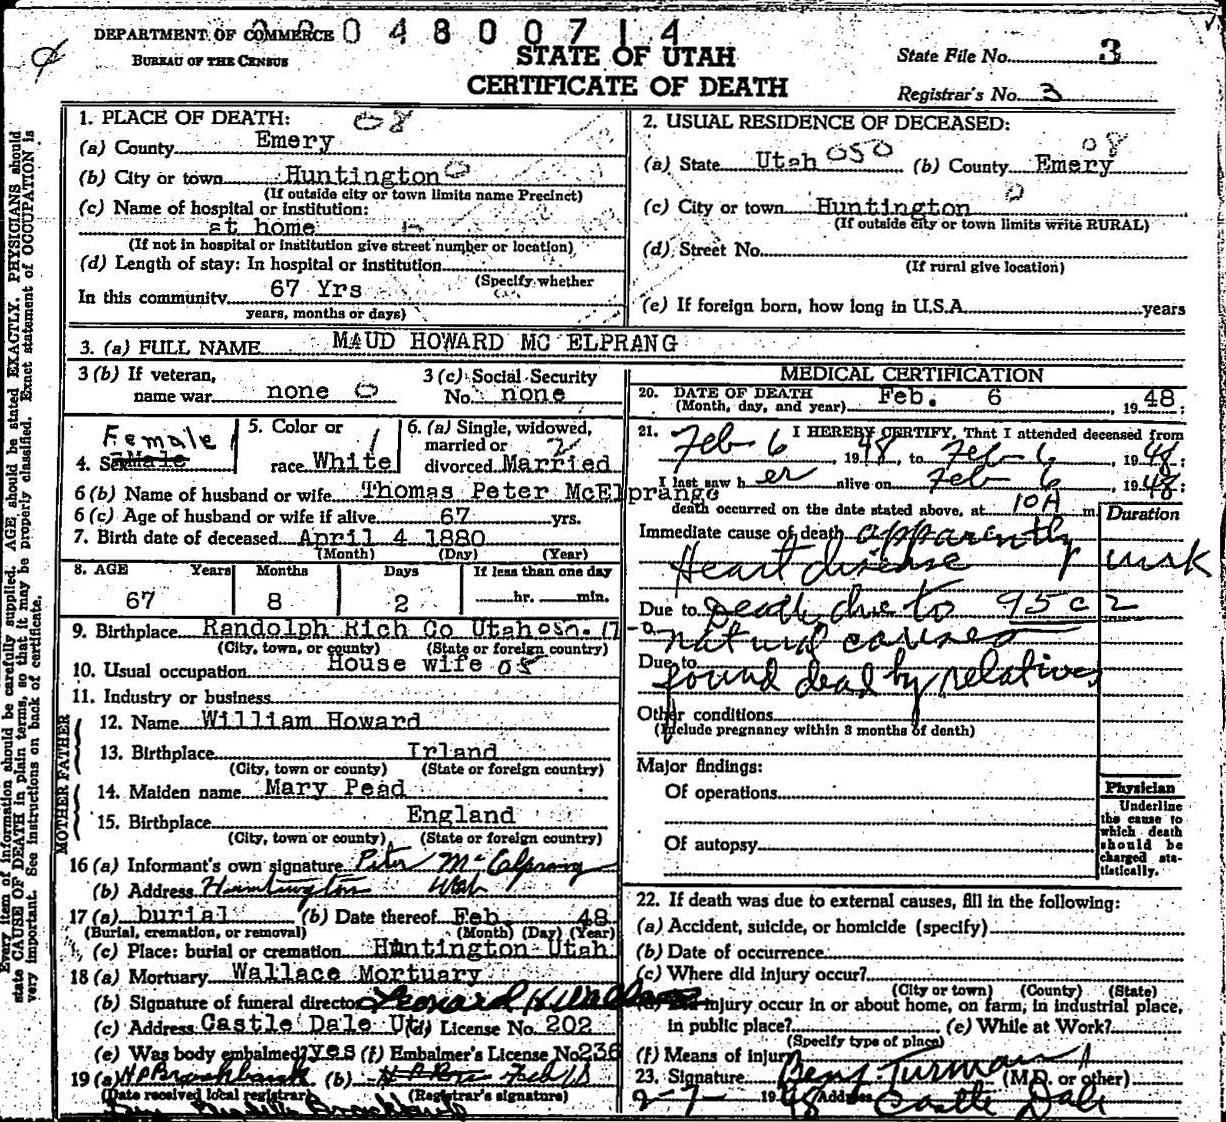 DEPARTMENT OF COMMERCE 0 4 8 0 0 7 1 4
BUREAU OF THE CENSUS
STATE OF UTAH
CERTIFICATE OF DEATH
State File No. 3
Registrar's No. 3
Every item of information should be carefully supplied. AGE should be stated EXACTLY. PHYSICIANS should
state CAUSE OF DEATH in plain terms, so that it may be properly classified. Exact statement of OCCUPATION is
very important. See instructions on back of certificate.
1. PLACE OF DEATH: 08
(a) County Emery
(b) City or town Huntington 0
(If outside city or town limits name Precinct)
(c) Name of hospital or institution:
at home
(If not in hospital or institution give street number or location)
(d) Length of stay: In hospital or institution
(Specify whether
In this community 67 Yrs
years, months or days)
2. USUAL RESIDENCE OF DECEASED:
(a) State Utah 050 (b) County Emery 08
(c) City or town Huntington 0
(If outside city or town limits write RURAL)
(d) Street No.
(If rural give location)
(e) If foreign born, how long in U.S.A. years
3. (a) FULL NAME MAUD HOWARD MC ELPRANG
3 (b) If veteran, name war none 0
3 (c) Social Security No. none
4. Sex Male Female 1
5. Color or race White 1
6. (a) Single, widowed, married or divorced Married 2
6 (b) Name of husband or wife Thomas Peter McElprange
6 (c) Age of husband or wife if alive 67 yrs.
7. Birth date of deceased April 4 1880
(Month) (Day) (Year)
8. AGE Years Months Days If less than one day
67 8 2 hr. min.
9. Birthplace Randolph Rich Co Utah 050. 17
(City, town, or county) (State or foreign country)
10. Usual occupation House wife 05
11. Industry or business
FATHER
12. Name William Howard
13. Birthplace Irland
(City, town or county) (State or foreign country)
MOTHER
14. Maiden name Mary Pead
15. Birthplace England
(City, town or county) (State or foreign country)
16 (a) Informant's own signature Peter McElprang
(b) Address Huntington Utah
17 (a) burial (b) Date thereof Feb. 48
(Burial, cremation, or removal) (Month) (Day) (Year)
(c) Place: burial or cremation Huntington Utah
18 (a) Mortuary Wallace Mortuary
(b) Signature of funeral director Leonard K
(c) Address Castle Dale Ut. (d) License No. 202
(e) Was body embalmed? yes (f) Embalmer's License No 236
19 (a) H P Brockbank (b) Feb 18
(Date received local registrar) (Registrar's signature)
Brockbank
MEDICAL CERTIFICATION
20. DATE OF DEATH
(Month, day, and year) Feb. 6, 1948;
21. I HEREBY CERTIFY, That I attended deceased from
Feb 6 1948, to Feb 6, 1948;
I last saw h er alive on Feb 6 1948;
death occurred on the date stated above, at 10A m.
Duration
Immediate cause of death apparently
Heart disease unk
Due to Death due to 95c2
natural causes
Due to
found dead by relatives
Other conditions
(Include pregnancy within 3 months of death)
Major findings:
Of operations
Of autopsy
Physician
Underline
the cause to
which death
should be
charged sta-
tistically.
22. If death was due to external causes, fill in the following:
(a) Accident, suicide, or homicide (specify)
(b) Date of occurrence
(c) Where did injury occur?
(City or town) (County) (State)
(d) Did injury occur in or about home, on farm, in industrial place,
in public place? (e) While at Work?
(Specify type of place)
(f) Means of injury
23. Signature Benj Turman (M.D. or other)
2-7- 1948 Address Castle Dale